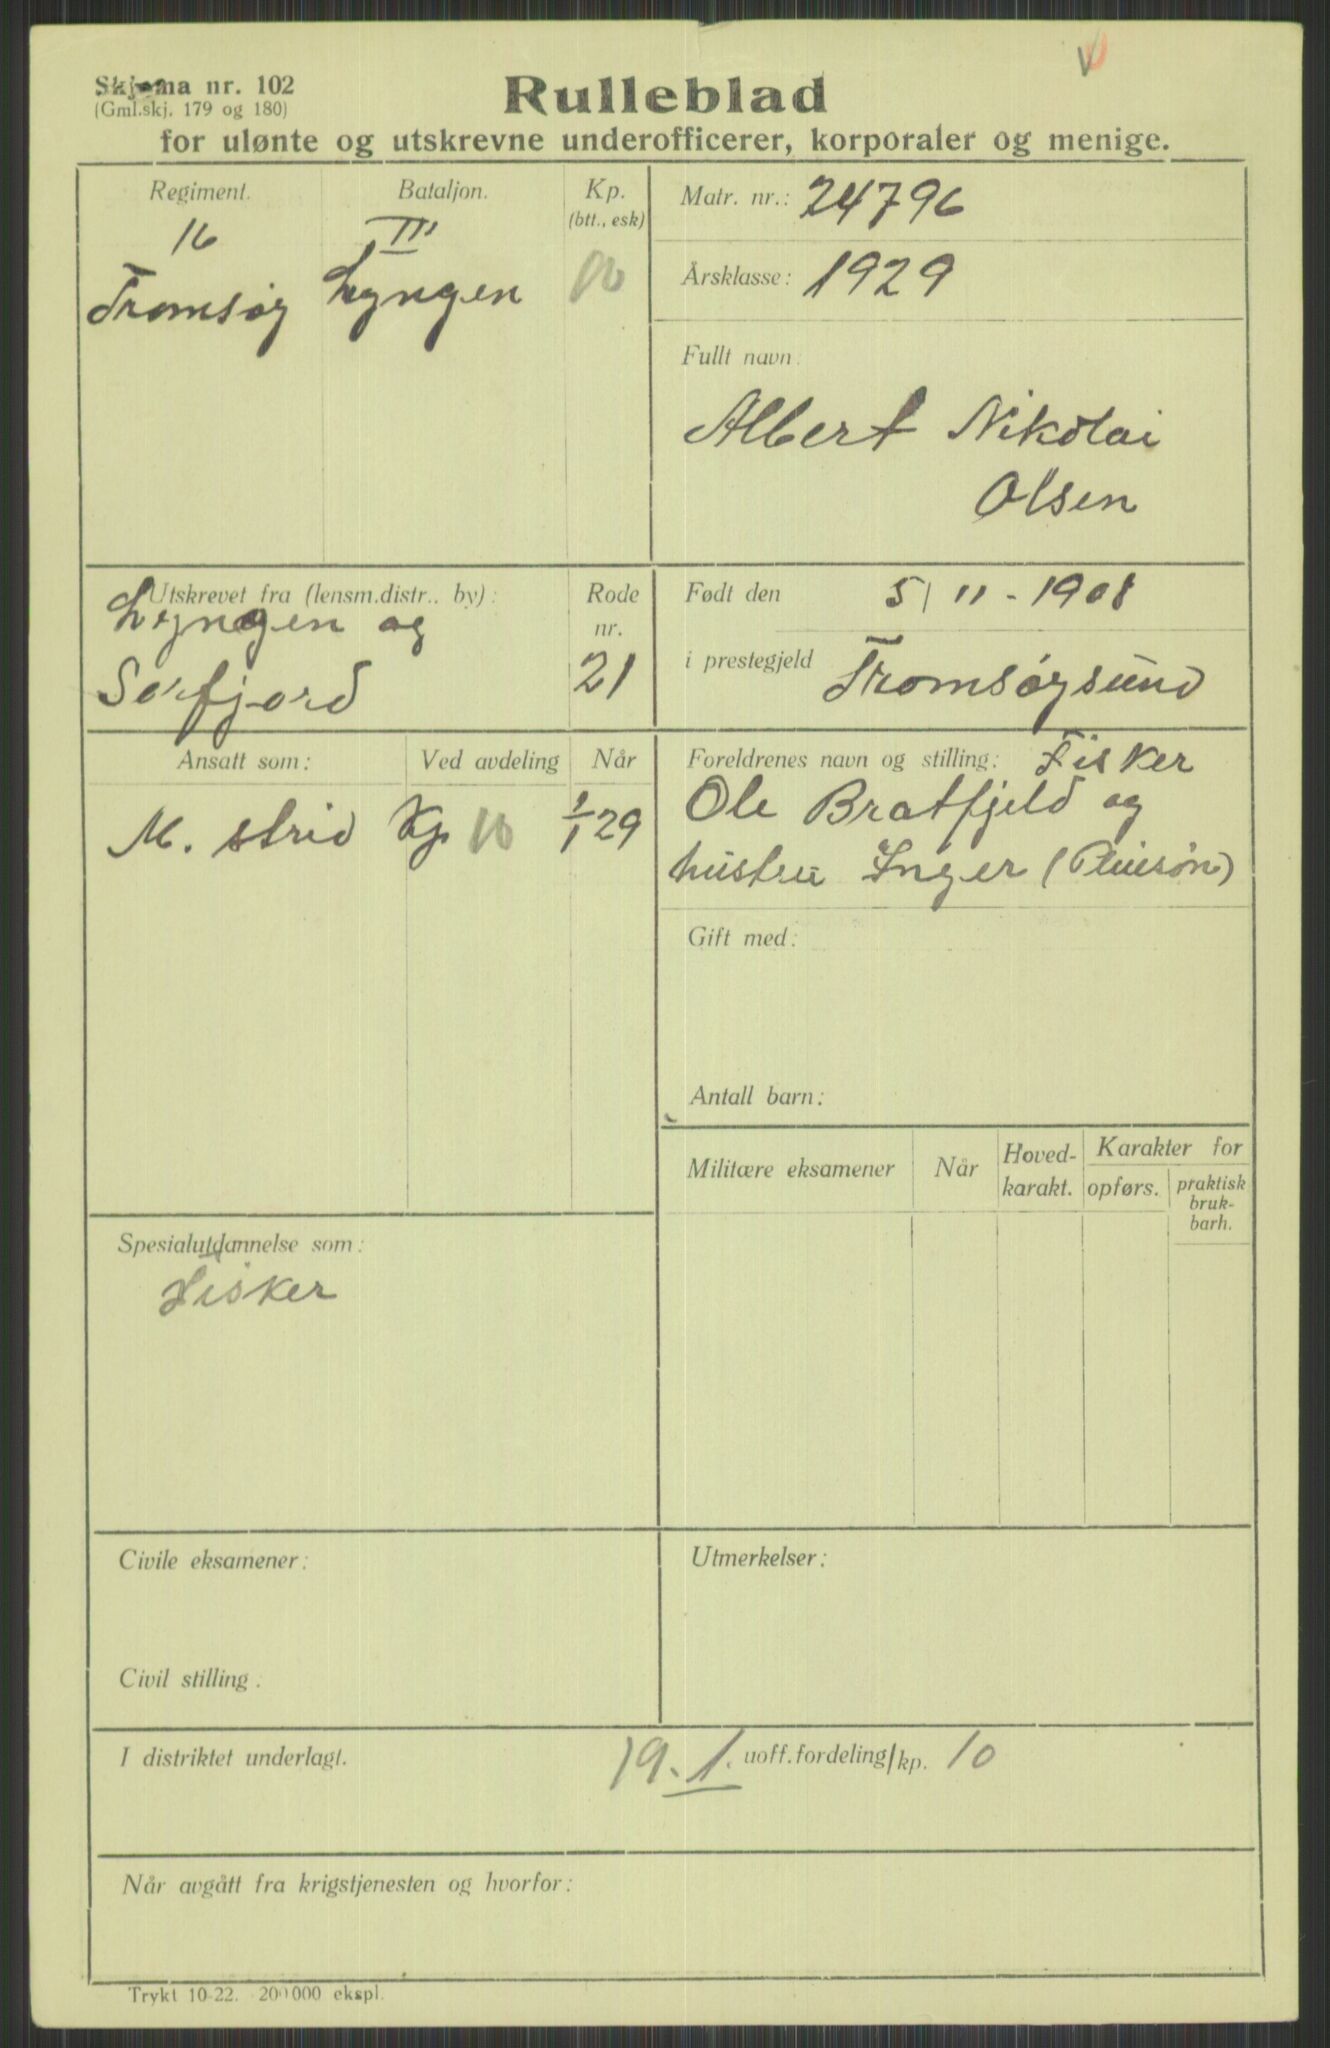 Skjema nr. 102
(Gml.skj. 179 og 180)
Rulleblad
for ulønte og utskrevne underofficerer, korporaler og menige.
Regiment. Bataljon. Kp.
(btt., esk)
16 III
Tromsøy Lyngen 10
Matr. nr.: 24796
Årsklasse: 1929
Fullt navn:
Albert Nikolai
Olsen
Utskrevet fra (lensm.distr.. by): Rode
nr.
Lyngen og
Sørfjord 21
Født den 5/11-1908
i prestegjeld Tromsøysund
Ansatt som: Ved avdeling Når
M. strid Kp 10 1/1 29
Foreldrenes navn og stilling: Fisker
Ole Bratfjeld og
hustru Inger
Gift med:
Antall barn:
Militære eksamener Når Hoved-
karakt. Karakter for
opførs. praktisk
bruk-
barh.
Spesialutdannelse som:
Fisker
Civile eksamener:
Civil stilling:
Utmerkelser:
I distriktet underlagt. 19.1. uoff.fordeling/kp. 10
Når avgått fra krigstjenesten og hvorfor:
Trykt 10-22. 200000 ekspl.